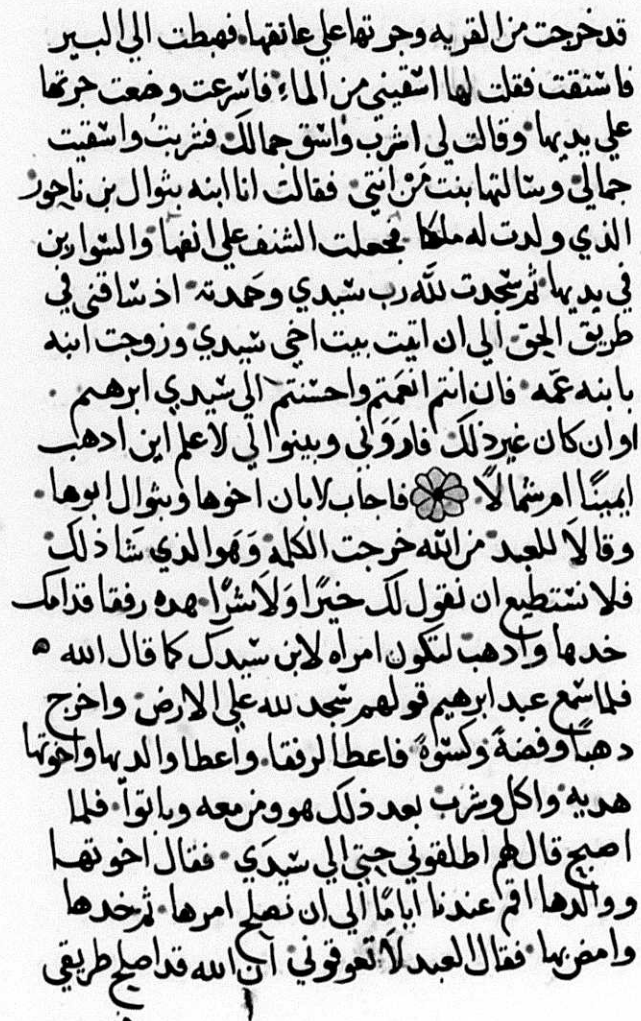 قد خرجت من القريه وجرتها علي عاتقها فهبطت الي البير
فاستقت فقلت لها اسقيني من الماء فاسرعت وضعت جرتها
علي يديها وقالت لي اشرب واسق جمالك فشربت واسقيت
جمالي وسالتها بنت من انتي فقالت انا ابنه بثوال بن ناحور
الذي ولدت له ملكا فجعلت الشنف علي انفها والسوارين
في يديها ثم سجدت لله رب سيدي وحمدته اذ ساقني في
طريق الحق الي ان اتيت بيت اخي سيدي وزوجت ابنه
بابنه عمه فان انتم انعمتم واحسنتم الي سيدي ابرهيم
اوان كان غير ذلك فاروني وبينوا لي لاعلم اين ادهب
ايمينا ام شمالا فاجاب لابان اخوها وبثوال ابوها
وقالا للعبد من الله خرجت الكلمه وهو الذي شا ذلك
فلا نستطيع ان نقول لك خيرا ولا شرا هده رفقا قدامك
خدها وادهب لتكون امراه لابن سيدك كما قال الله
فلما سمع عبد ابرهيم قولهم سجد لله علي الارض واخرج
دهبا وفضة وكسوة فاعطا لرفقا واعطا والديها واخوتها
هديه واكل وشرب بعد ذلك هو ومن معه وباتوا فلما
اصبح قال لهم اطلقوني حتي الي سيدي فقال اخوتها
ووالدها اقم عندنا اياما الي ان نصلح امرها ثم خدها
وامض بها فقال العبد لا تعوقوني ان الله قد اصلح طريقي